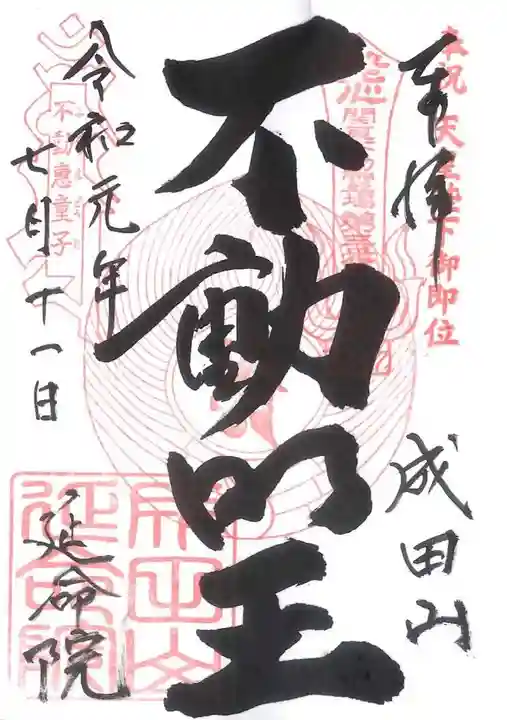 奉祝 天皇陛下 御即位
奉拝
成田山
不動明王
令和元年
七月十一日
不動恵童子
延命院
成田山
延命院